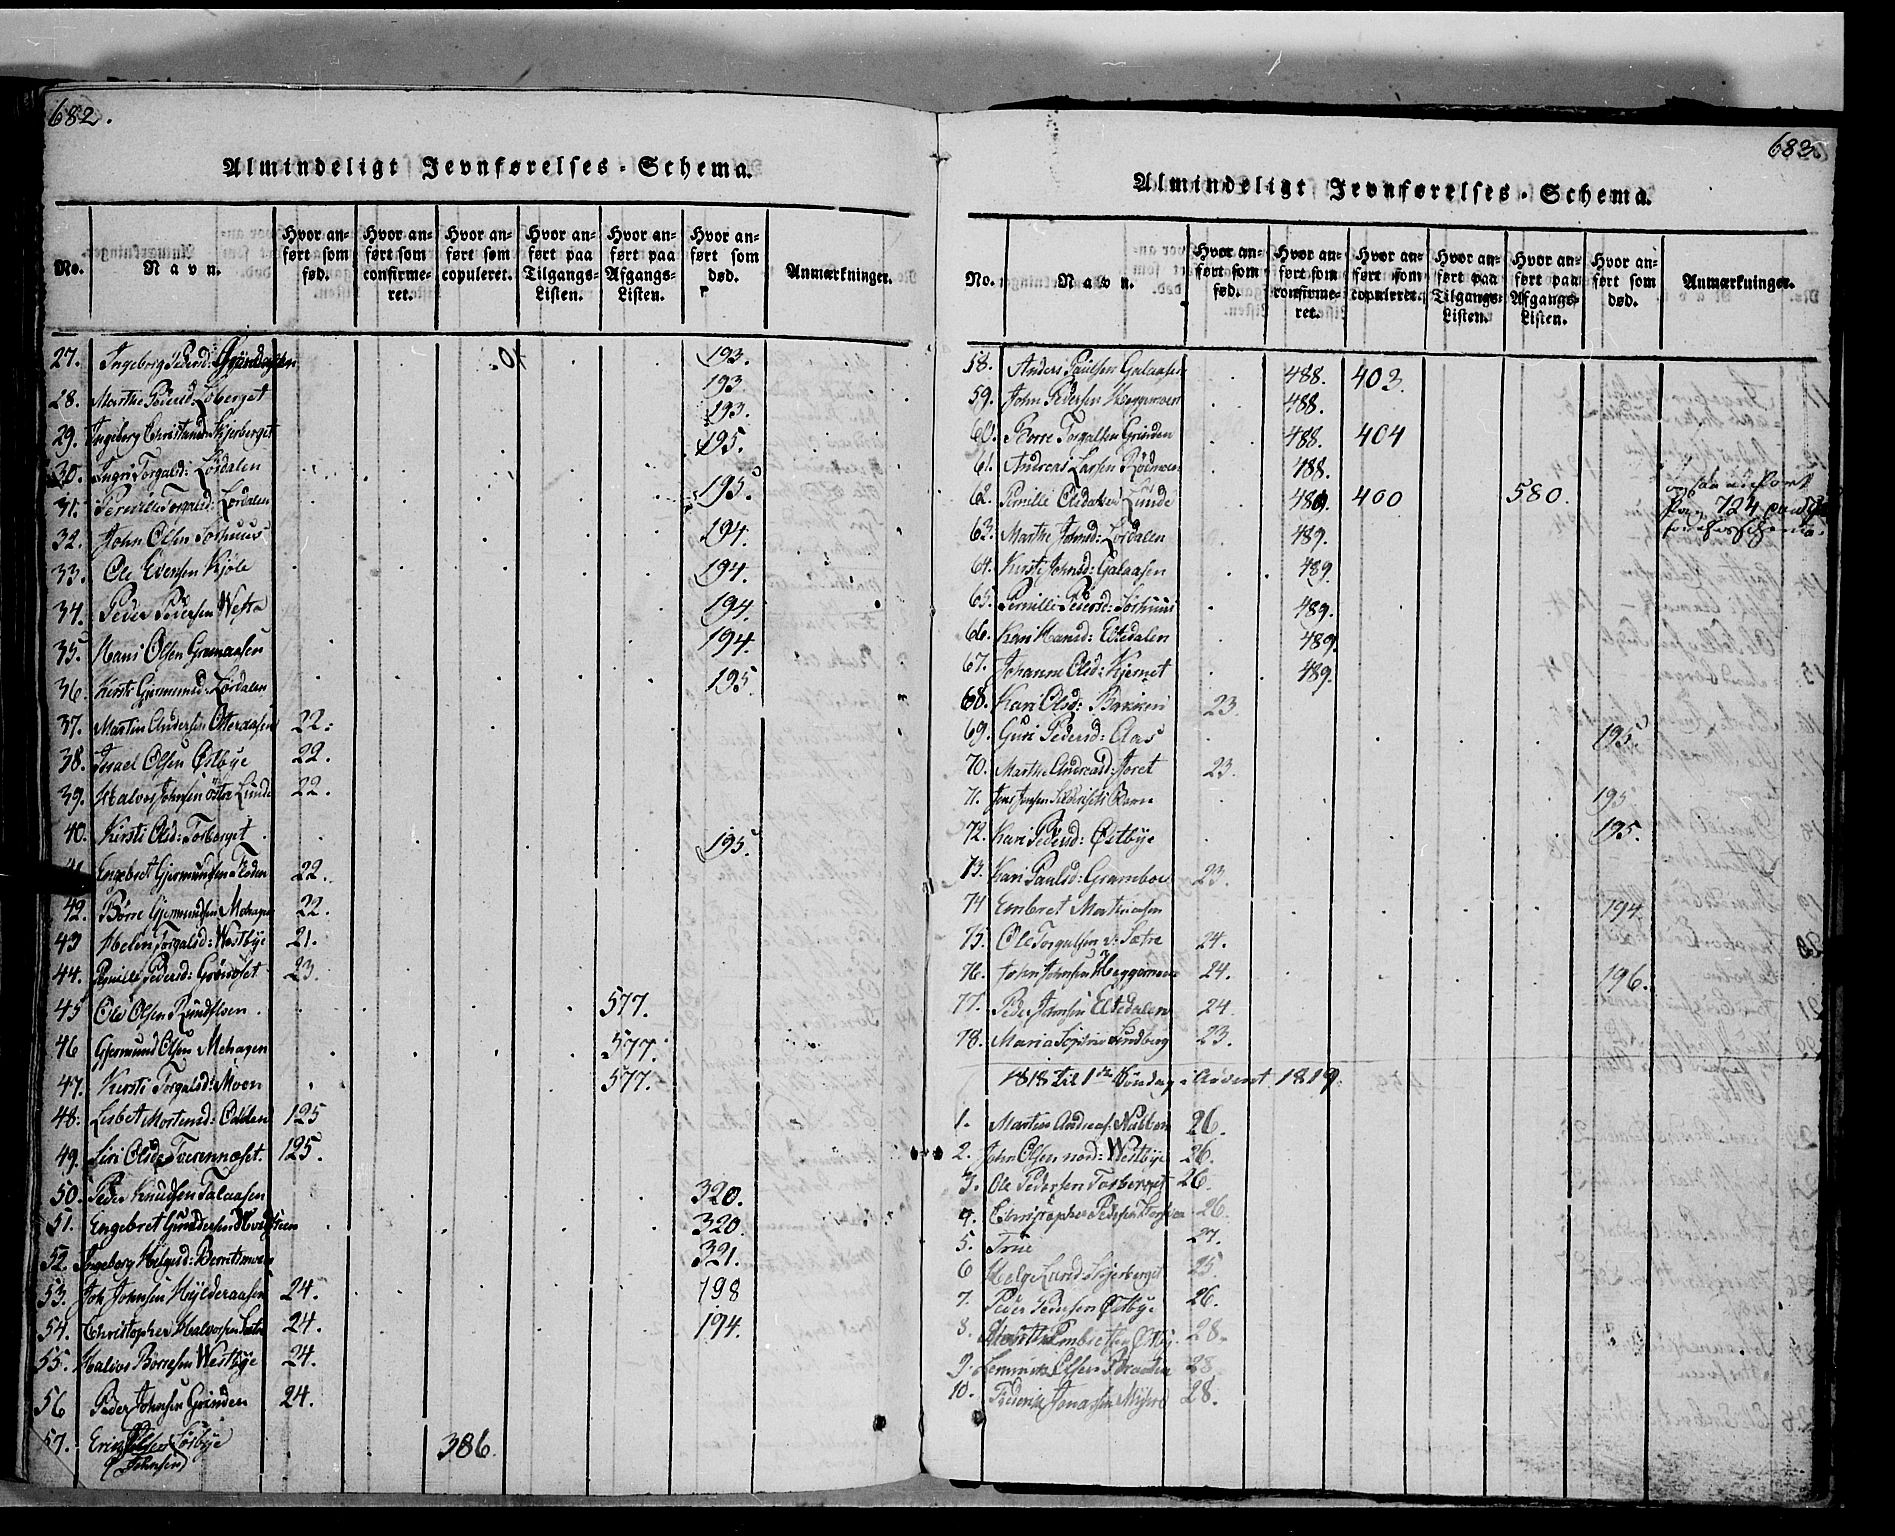 682.
Almindeligt Jevnførelses-Schema.
No.
Navn.
Hvor anført som fød.
Hvor anført som confirmeret.
Hvor anført som copuleret.
Hvor anført paa Tilgangs-Listen.
Hvor anført paa Afgangs-Listen.
Hvor anført som død.
Anmærkninger.
27. Ingeborg Pedersd: 193.
28. Marthe Pedersd: Loberget 193.
29. Ingeborg Christiansd: Skjerberget 193.
30. Ingri Torgalsd: Lørdalen 195.
31. Pernille Torgalsd: Lørdalen 195.
32. John Olsen Sørhuus 194.
33. Ole Eversen Kjøle 194.
34. Peder Pedersen Westra 194.
35. Hans Olsen Gramaasen 194.
36. Kirsti Gjermunds: Lørdalen 195.
37. Martin Andersen Otteraasen 22.
38. Israel Olsen Østbye 22.
39. Halvor Johnsen østre Lunde 22.
40. Kirsti Olsd: Torberget 195.
41. Engebret Gjermundsen Moden 22.
42. Børre Gjermundsen Mehagen 22.
43 Helen Torgalsd: Westbye 21.
44. Pernille Pedersd: Grönoset 23.
45 Ole Olsen Rundfloen. 577.
46 Gjermund Olsen Mehagen 577.
47. Kirsti Torgalsd: Moen 577.
48. Lisbet Mortensd: Odden 125
49. Siri Olsd: Tverennæset. 125.
50. Peder Knudsen Galaasen 320.
51. Engebret Gundersen 320.
52. Ingeborg Helgesd: Berntsmoen 321.
53. Joh Johnsen Hylderaasen 24. 198
54. Christopher Halvorsen Sætre 24. 194.
55. Halvor Børresen Westbye 24.
56 Peder Johnsen Grinden 24.
57. Erik Olsen Østbye 386.
(Johnsen)
683.
Almindeligt Jevnførelses-Schema.
No.
Navn.
Hvor anført som fød.
Hvor anført som confirmeret.
Hvor anført som copuleret.
Hvor anført paa Tilgangs-Listen.
Hvor anført paa Afgangs-Listen.
Hvor anført som død.
Anmærkninger.
58. Anders Paulsen Galaasen 488. 403.
59. John Pedersen Heggemoen 488.
60. Børre Torgalsen Grinden 488. 404
61. Andreas Larsen Rødmoen 488.
62. Pernille Olsdatter Lunde 489. 400 580. 724
63. Marthe Johnsd: Lørdalen 489.
64. Kirsti Johnsd: Galaasen 489.
65. Pernille Pedersd: Sørhuus 489.
66. Kari Hansd: Eltdalen 489.
67. Johanne Olsd: Kjernet 489.
68. Kari Olsd: Bakken 23.
69. Guri Pedersd: Aas 195.
70. Marthe Andreasd: Joret 23.
71. Jens Jensen Barn 195.
72. Kari Pedersd: Østbye 195.
73. Kari Paulsd: Gramboe 23.
74 Embret Martinsen 194
75. Ole Torgalsen v: Sætre 24.
76. John Johnsen Heggemoen 24. 196.
77. Peder Johnsen Eltedalen 24
78. Maria Sophie Lindberg 23.
1818 til 1ste Søndag i Advent 1819.
1. Martin Andreas: Nubben 26.
2. John Olsen nord: Westbye 26.
3. Ole Pedersen Torberget 26.
4. Christopher Pedersen 26.
5. True 27.
6 Helge Skjerberget 25
7. Peder Pedersen Østbye 26.
8. Embretsen 28.
9. Olsen 28
10. Frederik Jonassen 28.